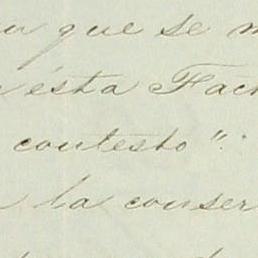 que se
ésta Fach
contesto".
la conser